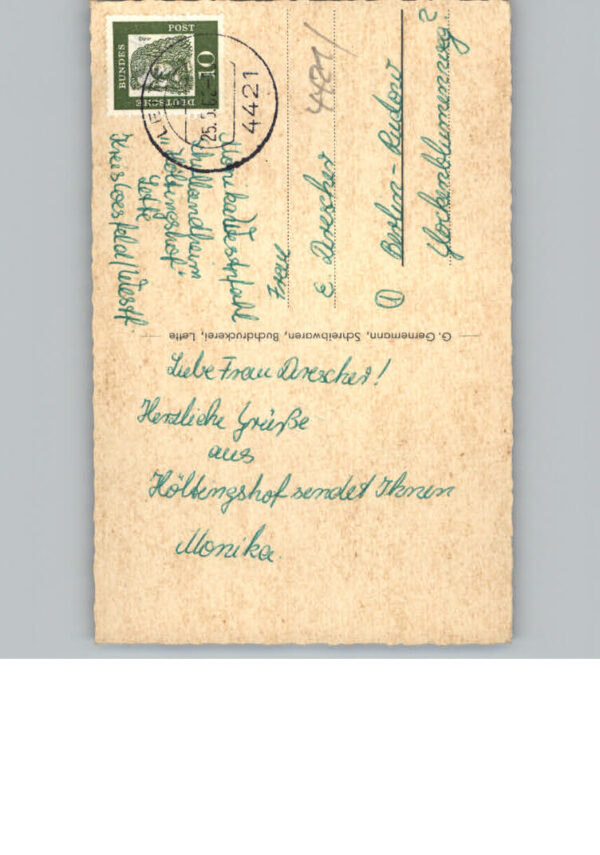 Liebe Frau Drescher!
Herzliche Grüße
aus
Höltingshof sendet Ihnen
Monika.
G. Gernemann, Schreibwaren, Buchdruckerei, Lette
Monika Westphal
Höltingshof"
Lette
Kreis Coesfeld/Westf
Frau
E. Drescher
① Berlin-Rudow
Glockenblumenweg 2
4421
DEUTSCHE
BUNDES
POST
10
25.5.
4421